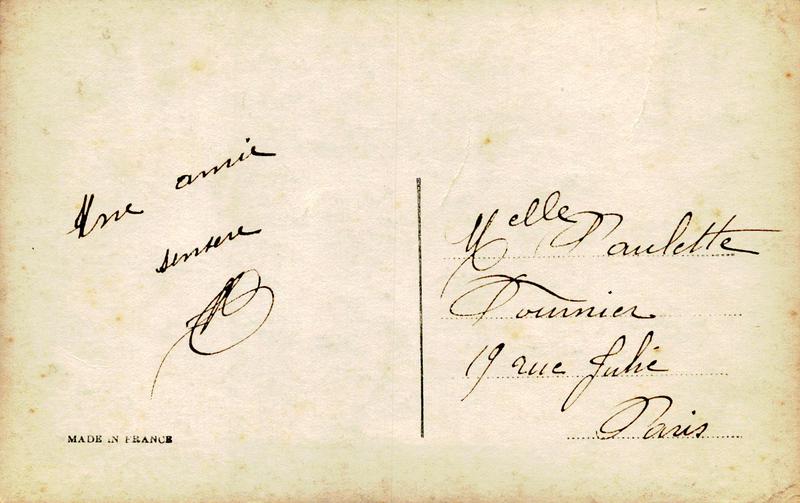 Une amie
sensere
Melle Paulette
Fournier
19 rue Julie
Paris
MADE IN FRANCE